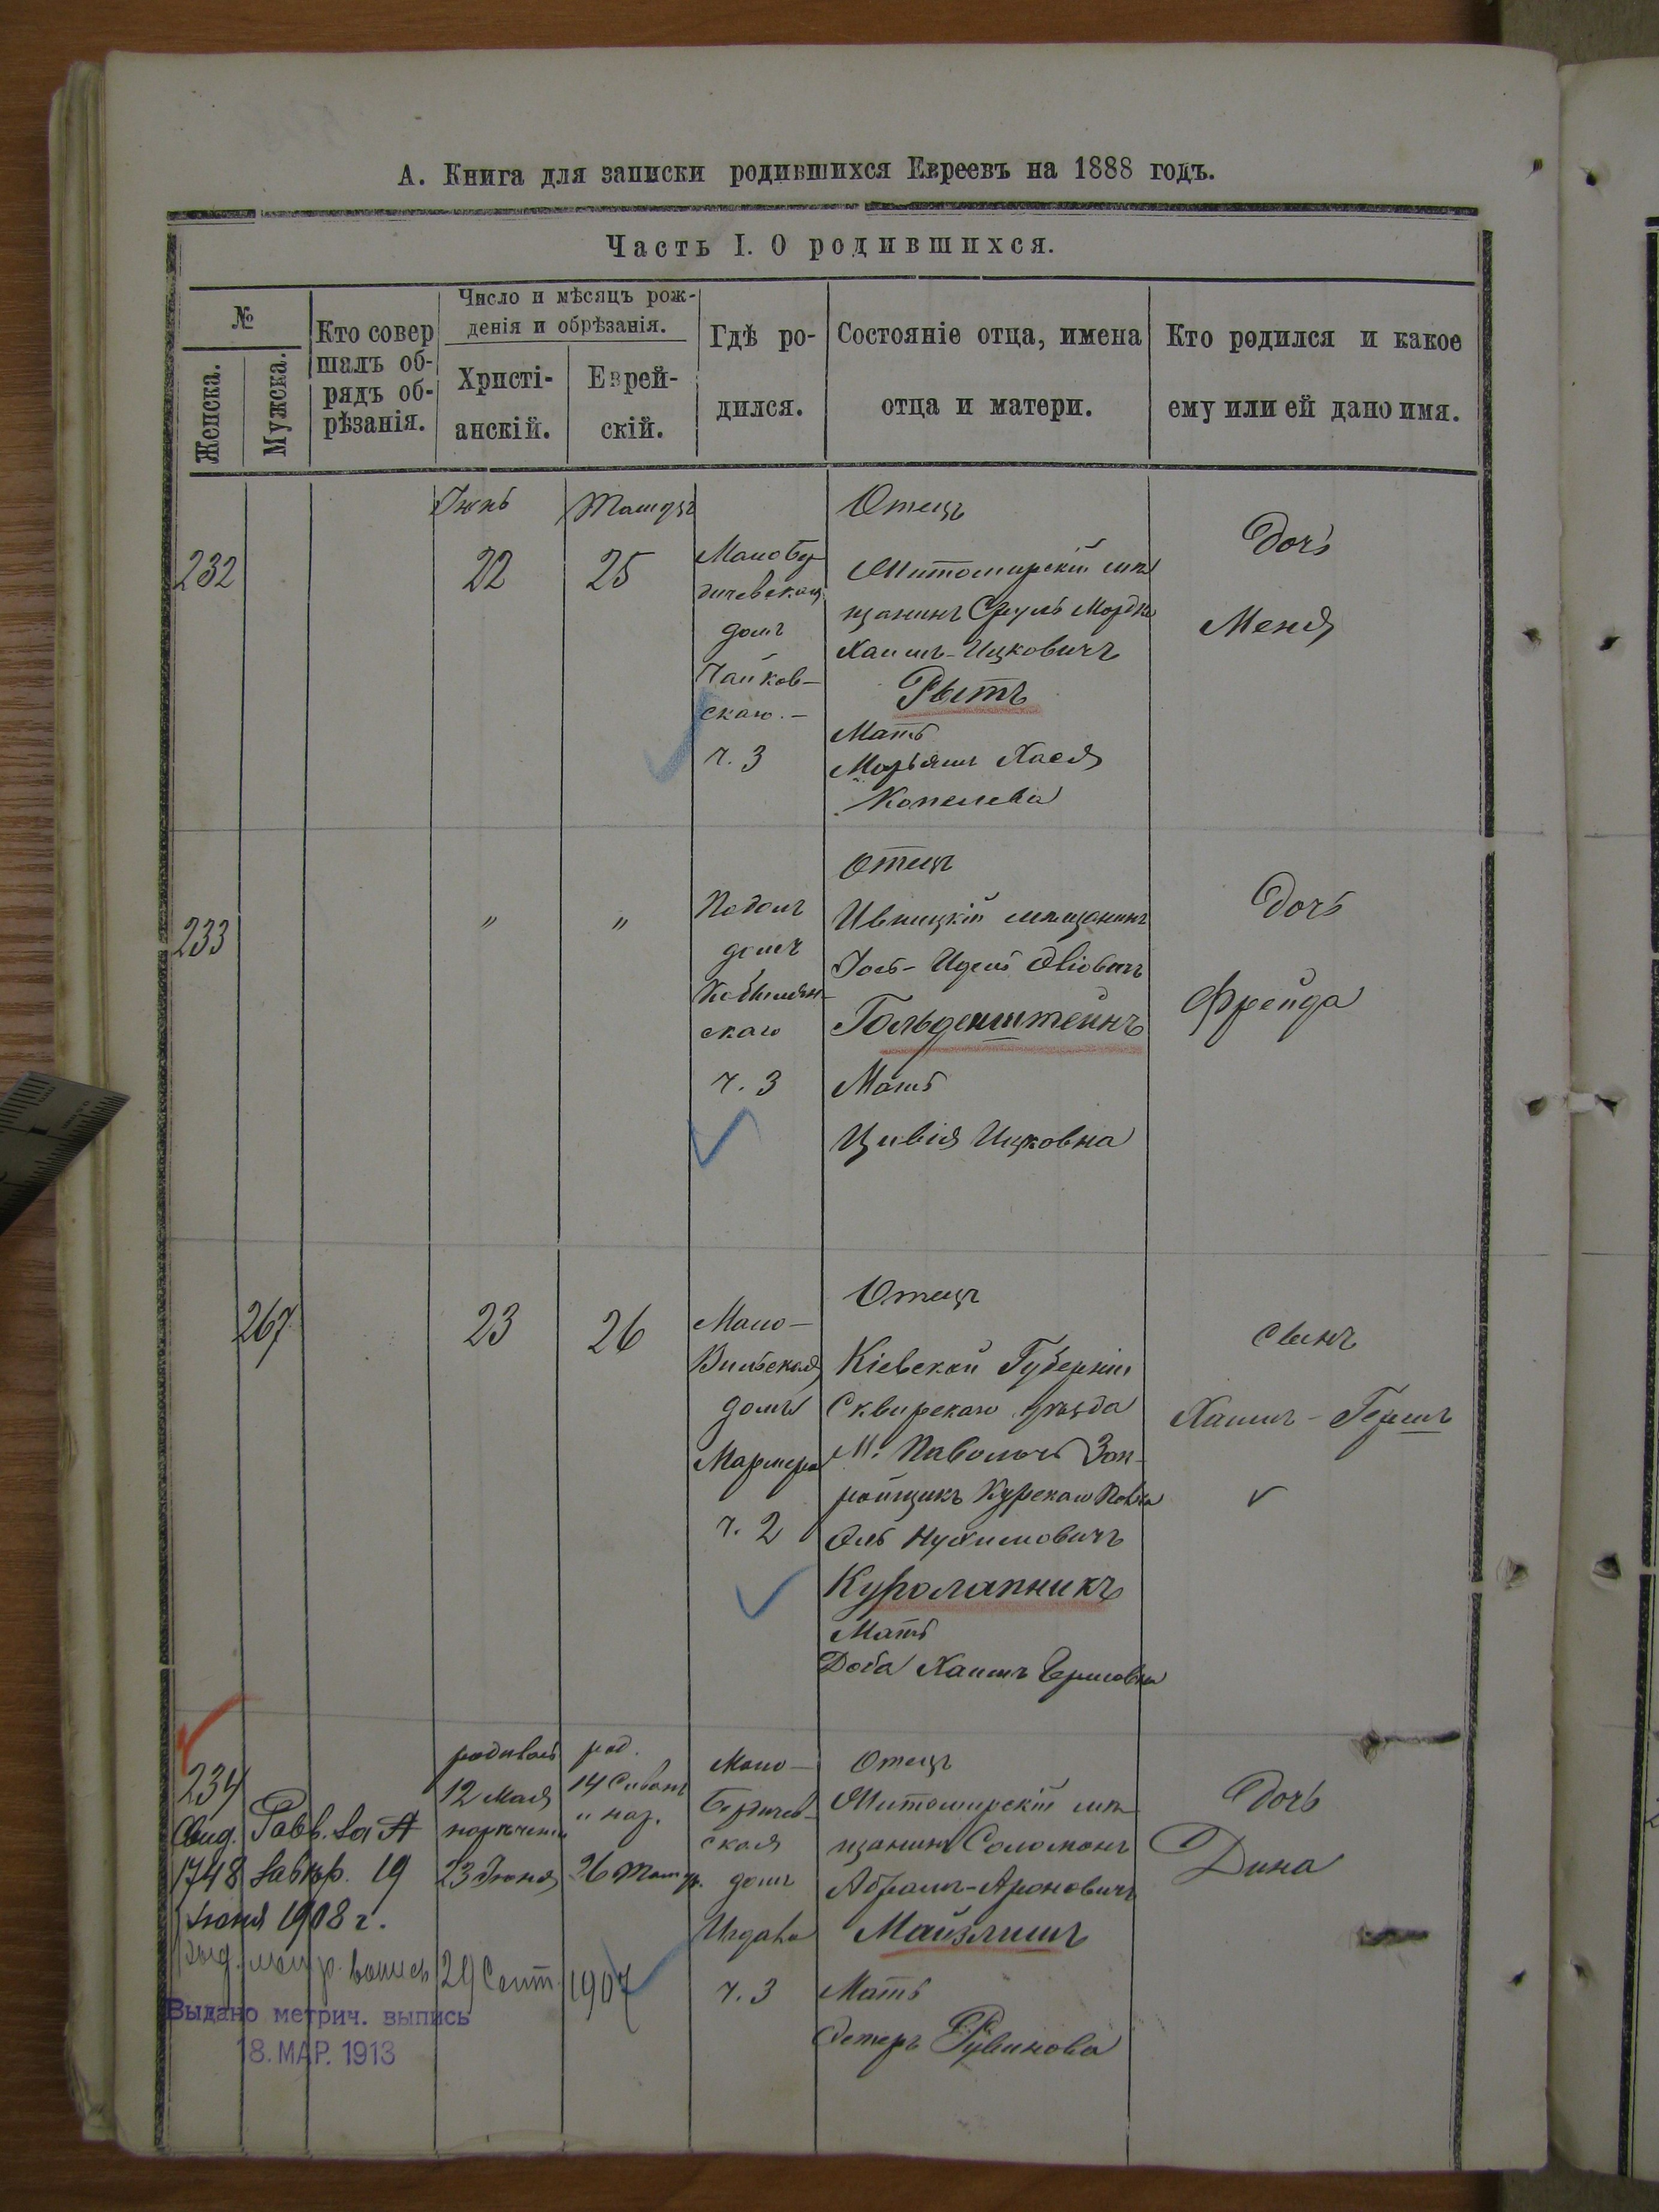 А. Книга для записки родившихся Евреевъ на 1888 годъ.
Часть I. О родившихся.
№
Женска.
Мужска.
Кто совер
шалъ об-
рядъ об-
рѣзанія.
Число и мѣсяцъ рож-
денія и обрѣзанія.
Христі-
анскій.
Еврей-
скій.
Гдѣ ро-
дился.
Состояніе отца, имена
отца и матери.
Кто родился и какое
ему или ей дано имя.
232
Іюнь
22
Тамузъ
25
Мало Бер
дичевская
домъ
Чайков-
скаго.-
ч. 3
Отецъ
Житомирскій мѣ
щанинъ Сруль Мордко
Хаимъ-Ицковичъ
Рытъ
Мать
Марьямъ Хася
Копелева
Дочь
Меня
233
"
"
Подолъ
домъ
скаго
ч. 3
Отецъ
Ивницкій мѣщанинъ
Гольденштейнъ
Мать
Цивія Ицковна
Дочь
Фрейда
267
23
26
Мало-
Вильская
домъ
ч. 2
Отецъ
Кіевской Губерніи
Сквирскаго уѣзда
М. Паволочь Зак-
ройщикъ Курскаго Полка
Нухимовичъ
Куролапникъ
Мать
Доба Хаимъ Гершовна
сынъ
Хаимъ-Гершъ
234
Свид. Равв. за №
1748 завѣр. 19
Іюня 1908 г.
родилась
12 Мая
наречена
23 Іюня
род.
14 Сиванъ
и нар.
26 Тамуз.
Мало-
Бердичев-
ская
домъ
ч. 3
Отецъ
Житомирскій мѣ
щанинъ Соломонъ
Абрамъ-Ароновичъ
Майзлишъ
Мать
Эстеръ Рувинова
Дочь
Дина
Выд. метр. выпись 29 Сент. 1907
Выдано метрич. выпись
18. МАР. 1913